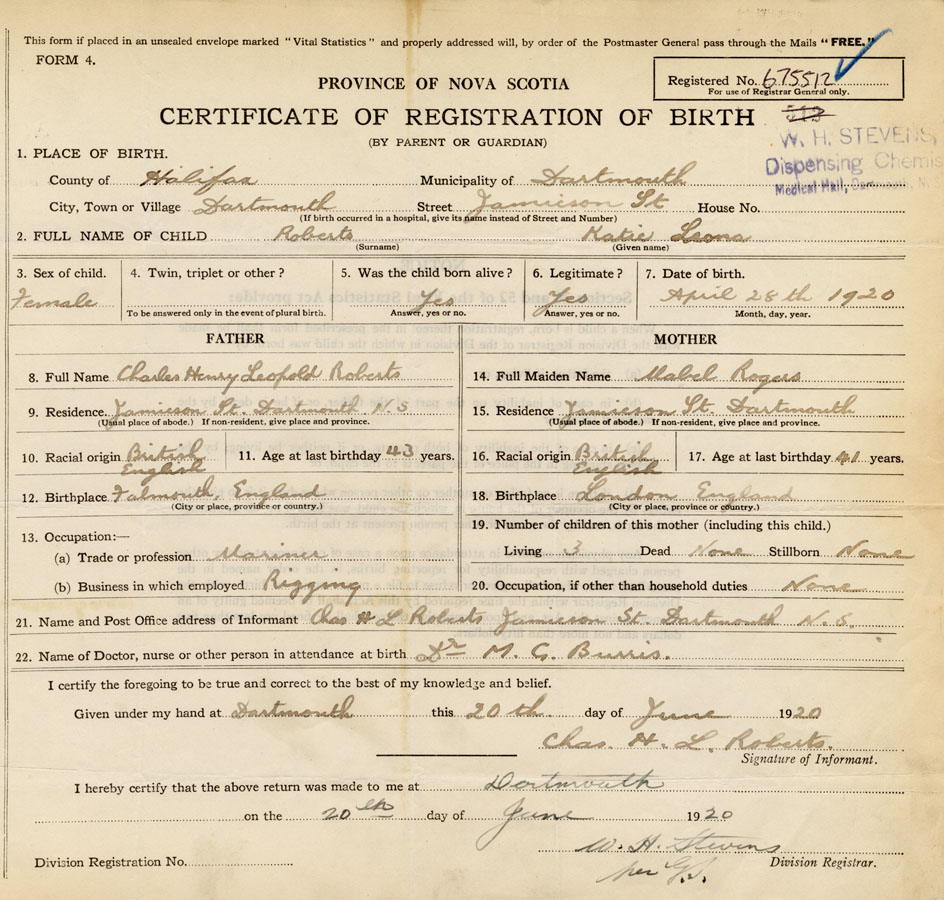 This form if placed in an unsealed envelope marked "Vital Statistics" and properly addressed will, by order of the Postmaster General pass through the Mails "FREE."
FORM 4.
Registered No. 675512
For use of Registrar General only.
PROVINCE OF NOVA SCOTIA
CERTIFICATE OF REGISTRATION OF BIRTH
(BY PARENT OR GUARDIAN)
W. H. STEVENS,
Dispensing Chemis
Medical Hall,
1. PLACE OF BIRTH.
County of Halifax Municipality of Dartmouth
City, Town or Village Dartmouth Street Jamieson St House No.
(If birth occurred in a hospital, give its name instead of Street and Number)
2. FULL NAME OF CHILD Roberts Katie Leona
(Surname) (Given name)
3. Sex of child. 4. Twin, triplet or other? 5. Was the child born alive? 6. Legitimate? 7. Date of birth.
Female Yes Yes April 28th 1920
To be answered only in the event of plural birth. Answer, yes or no. Answer, yes or no. Month, day, year.
FATHER MOTHER
8. Full Name Charles Henry Leopold Roberts 14. Full Maiden Name Mabel Rogers
9. Residence. Jamieson St. Dartmouth N.S 15. Residence Jamieson St. Dartmouth
(Usual place of abode.) If non-resident, give place and province. (Usual place of abode.) If non-resident, give place and province.
10. Racial origin British English 11. Age at last birthday 43 years. 16. Racial origin British English 17. Age at last birthday 41 years.
12. Birthplace Falmouth, England 18. Birthplace London England
(City or place, province or country.) (City or place, province or country.)
13. Occupation:— 19. Number of children of this mother (including this child.)
(a) Trade or profession Mariner Living 3 Dead None Stillborn None
(b) Business in which employed Rigging 20. Occupation, if other than household duties None
21. Name and Post Office address of Informant Chas H L Roberts Jamieson St. Dartmouth N.S.
22. Name of Doctor, nurse or other person in attendance at birth Dr M. G. Burris.
I certify the foregoing to be true and correct to the best of my knowledge and belief.
Given under my hand at Dartmouth this 20th day of June 1920
Chas. H. L. Roberts.
Signature of Informant.
I hereby certify that the above return was made to me at Dartmouth
on the 20th day of June 1920
W. H. Stevens
Division Registration No. Division Registrar.